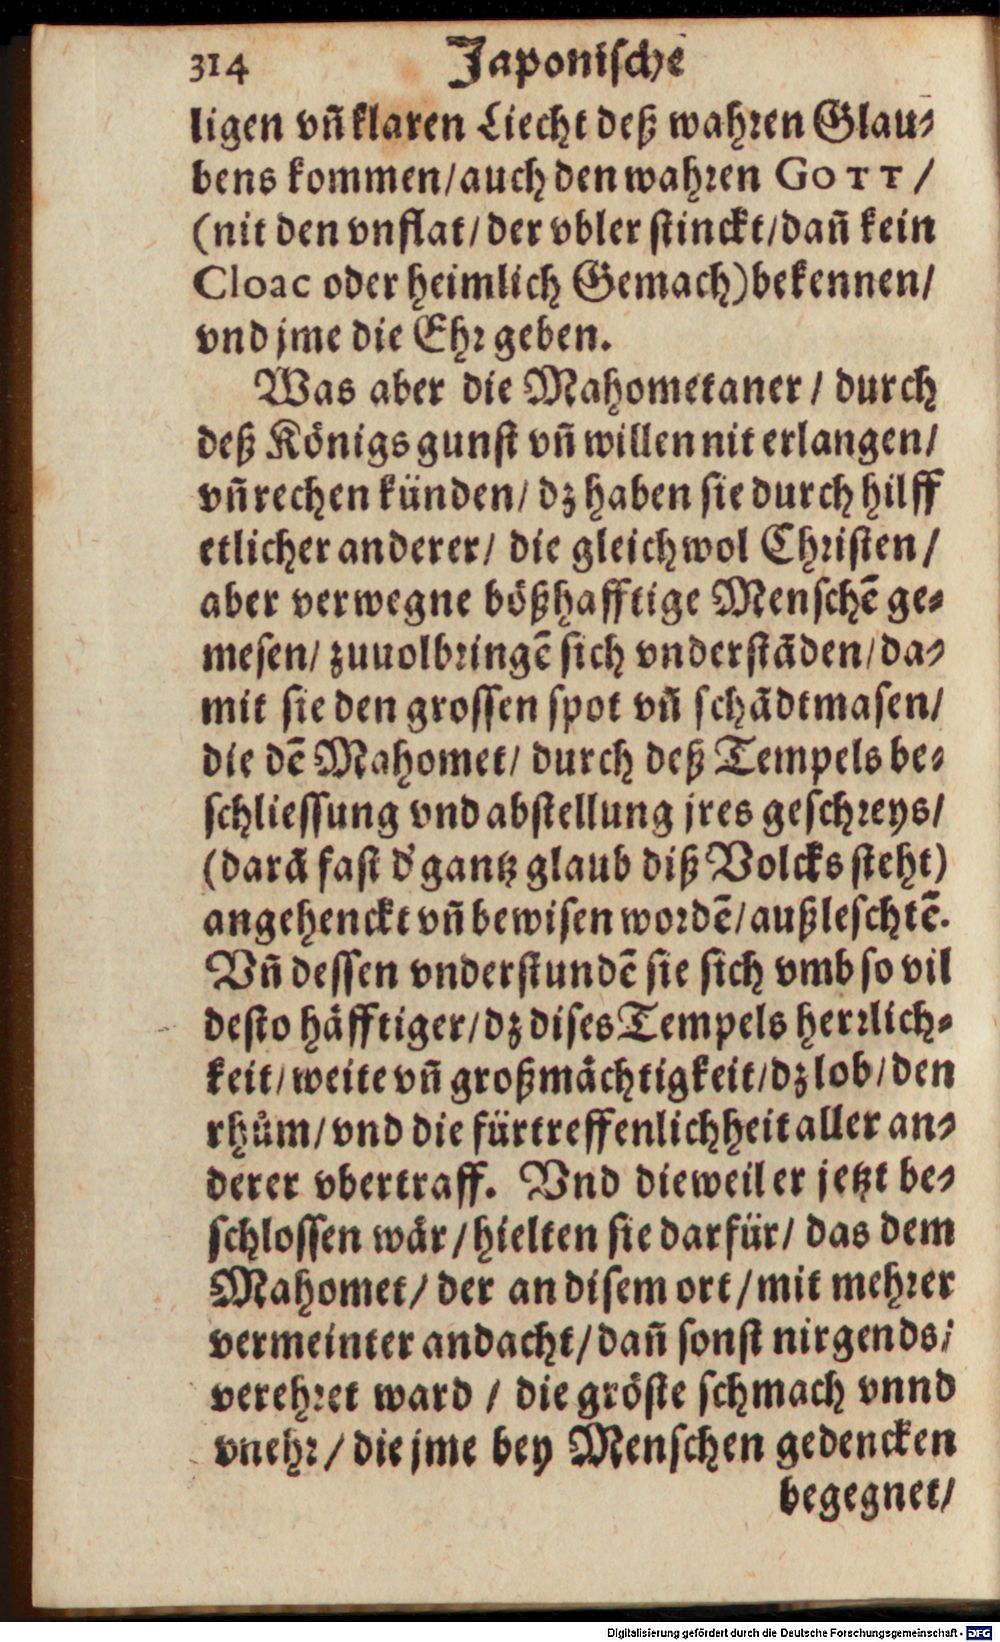 314 Japonische
ligen vñ klaren Liecht deß wahren Glau⸗
bens kommen/ auch den wahren GOTT/
(nit den vnflat/ der vbler stinckt/ dañ kein
Cloac oder heimlich Gemach) bekennen/
vnd jme die Ehr geben.
Was aber die Mahometaner/ durch
deß Königs gunst vñ willen nit erlangen/
vñ rechen künden/ dz haben sie durch hilff
etlicher anderer/ die gleichwol Christen/
aber verwegne bößhafftige Menschẽ ge⸗
mesen/ zuuolbringẽ sich vnderstãden/ da⸗
mit sie den grossen spot vñ schãdtmasen/
die dẽ Mahomet/ durch deß Tempels be⸗
schliessung vnd abstellung jres geschreys/
(darã fast d' gantz glaub diß Volcks steht)
angehenckt vñ bewisen wordẽ/ außleschtẽ.
Vñ dessen vnderstundẽ sie sich vmb so vil
desto häfftiger/ dz dises Tempels herrlich⸗
keit/ weite vñ großmächtigkeit/ dz lob/ den
rhům/ vnd die fürtreffenlichheit aller an⸗
derer vbertraff. Vnd dieweil er jetzt be⸗
schlossen wär/ hielten sie darfür/ das dem
Mahomet/ der an disem ort/ mit mehrer
vermeinter andacht/ dañ sonst nirgends/
verehret ward/ die gröste schmach vnnd
vnehr/ die jme bey Menschen gedencken
begegnet/
Digitalisierung gefördert durch die Deutsche Forschungsgemeinschaft - DFG